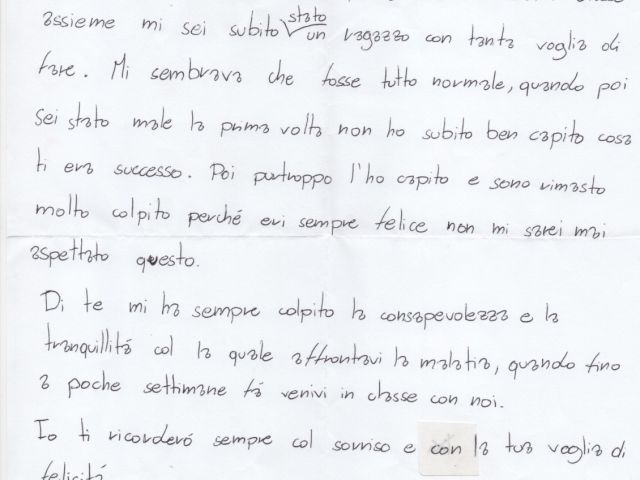 assieme mi sei subito stato un ragazzo con tanta voglia di
fare. Mi sembrava che fosse tutto normale, quando poi
sei stato male la prima volta non ho subito ben capito cosa
ti era successo. Poi purtroppo l'ho capito e sono rimasto
molto colpito perché eri sempre felice non mi sarei mai
aspettato questo.
Di te mi ha sempre colpito la consapevolezza e la
tranquillitá col la quale affrontavi la malatia, quando fino
a poche settimane fá venivi in classe con noi.
Io ti ricorderó sempre col sorriso e con la tua voglia di
felicitá